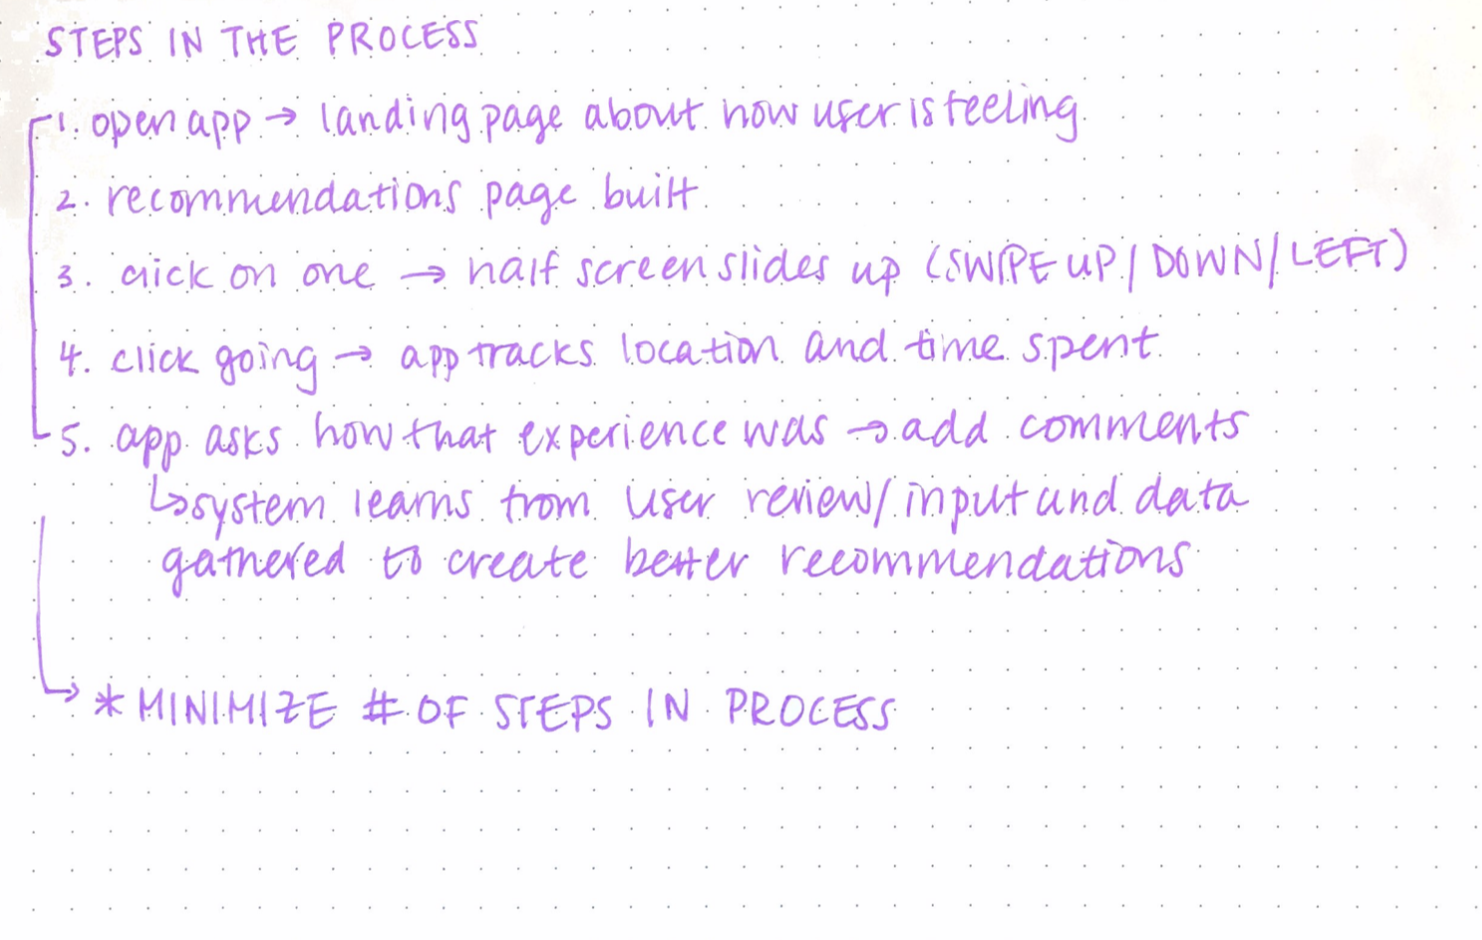 STEPS IN THE PROCESS
1. open app → landing page about how user is feeling
2. recommendations page built
3. click on one → half screen slides up (SWIPE UP/DOWN/LEFT)
4. click going → app tracks location and time spent
5. app asks how that experience was → add comments
↳ system learns from user review/input and data
gathered to create better recommendations
→ * MINIMIZE # OF STEPS IN PROCESS